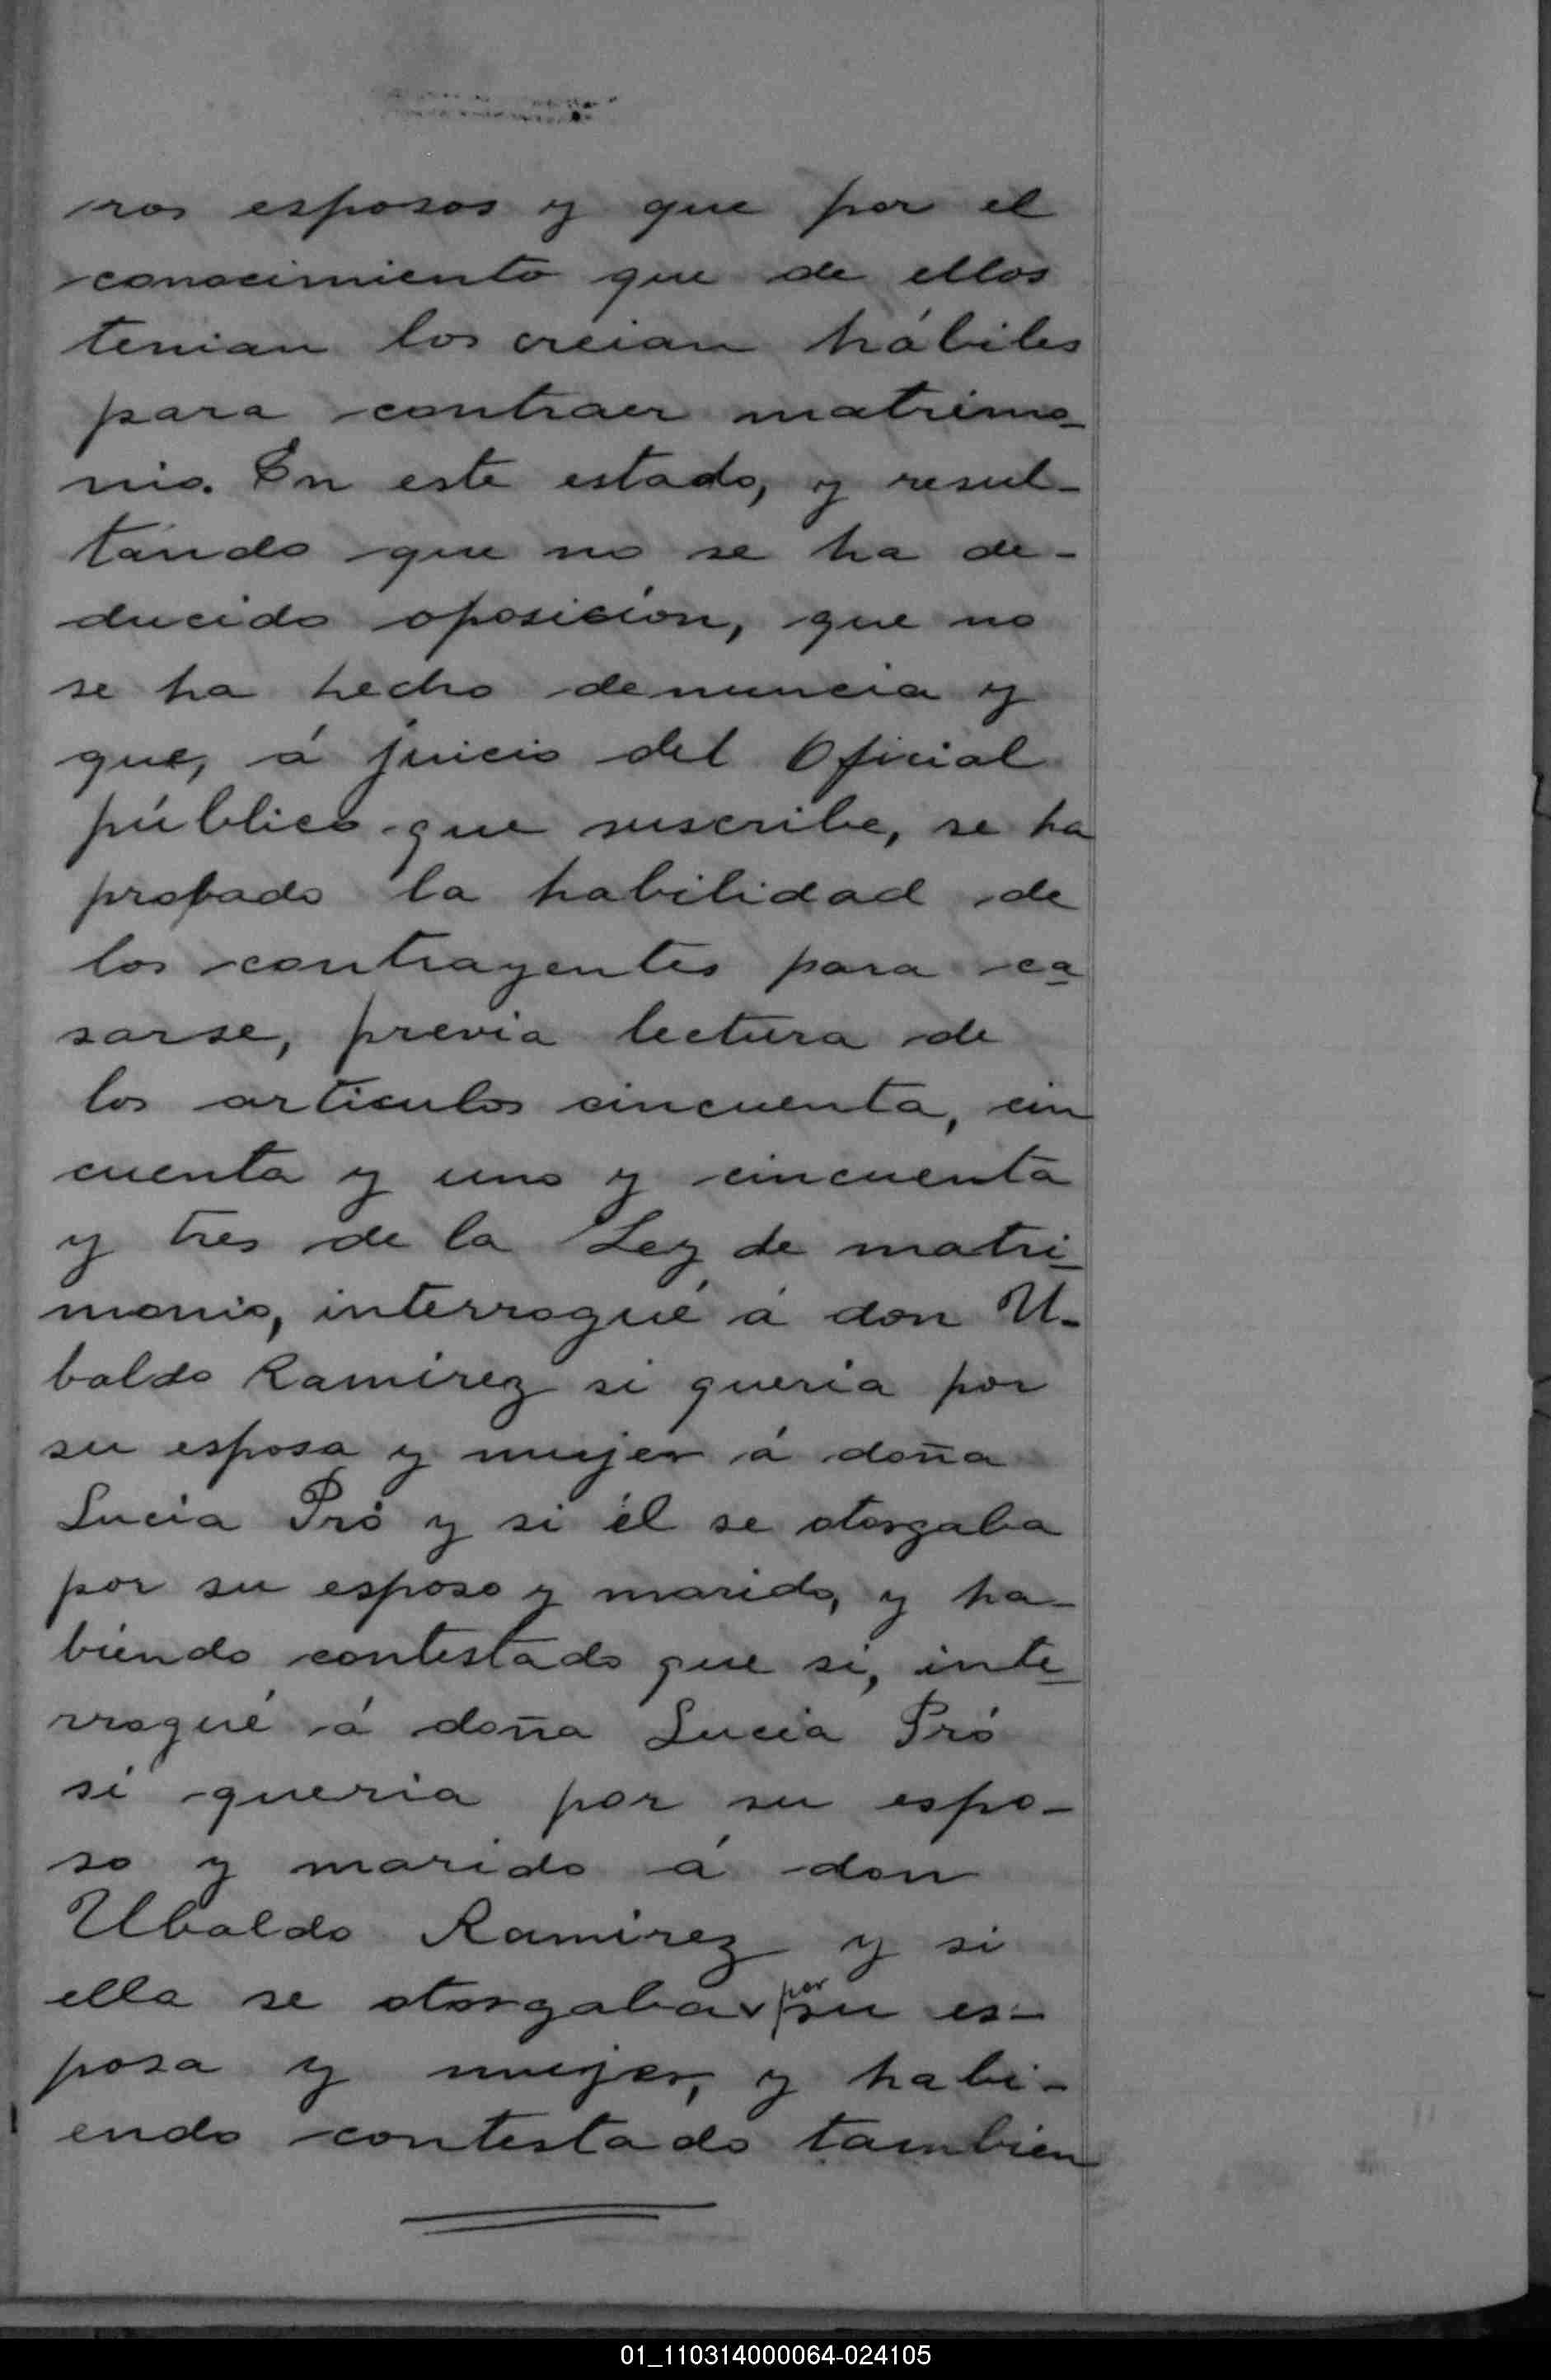 ros esposos y que por el
conocimiento que de ellos
tenian los creian hábiles
para contraer matrimo-
nio. En este estado, y resul-
tando que no se ha de-
ducido oposición, que no
se ha hecho denuncia y
que, á juicio del Oficial
público que suscribe, se ha
probado la habilidad de
los contrayentes para ca
sarse, previa lectura de
los articulos cincuenta, cin
cuenta y uno y cincuenta
y tres de la Ley de matri
monio, interrogué á don U-
baldo Ramirez si queria por
su esposa y mujer á doña
Lucia Pró y si él se otorgaba
por su esposo y marido, y ha-
biendo contestado que si, inte
rrogué á doña Lucia Pró
si queria por su espo-
so y marido á don
Ubaldo Ramirez y si
ella se otorgaba por su es-
posa y mujer, y habi-
endo contestado tambien
01_110314000064-024105